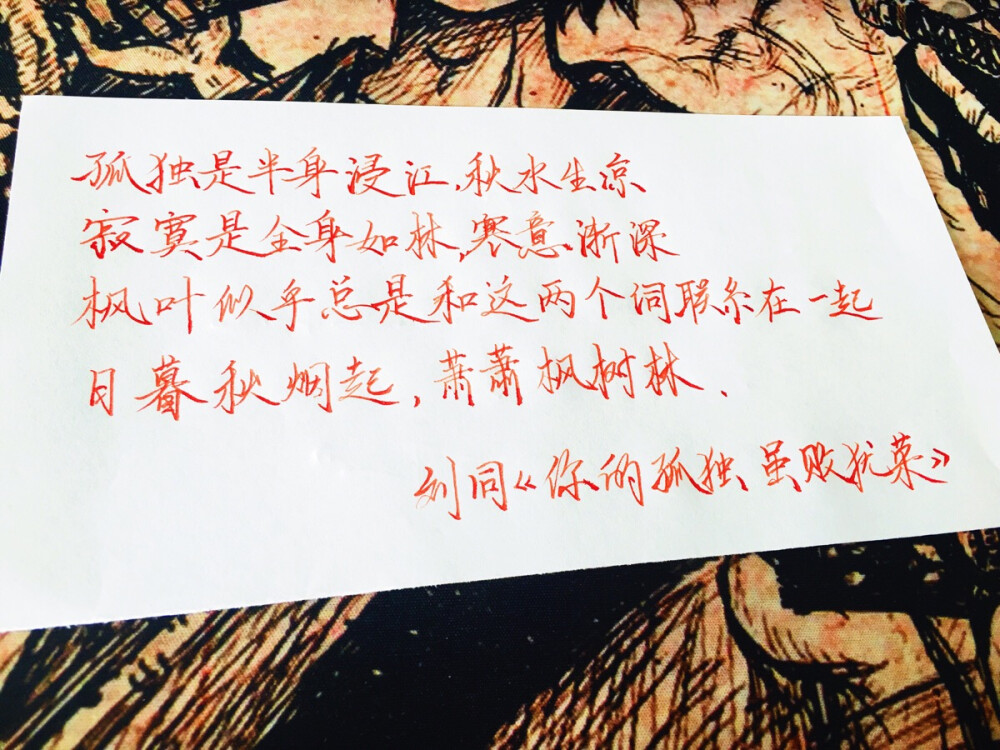 孤独是半身浸江,秋水生凉
寂寞是全身如林,寒意渐深
枫叶似乎总是和这两个词联系在一起
日暮秋烟起,萧萧枫树林.
刘同《你的孤独虽败犹荣》